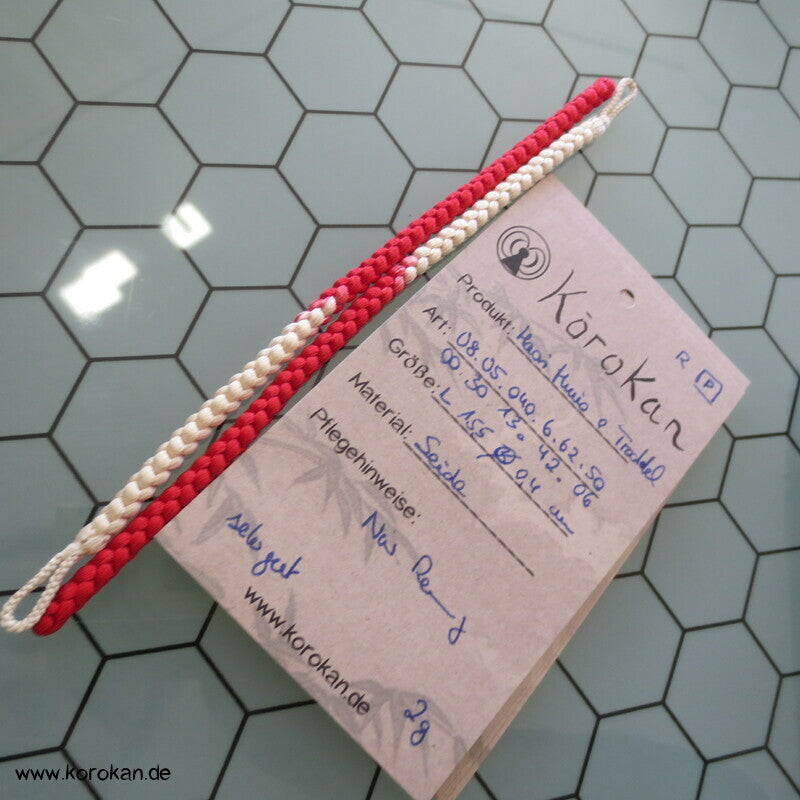 Kōrokan
R P
Produkt: Haori Himo o Troddel
Art: 08.05.040.6.62.50
00 30. 13. 42. 06
Größe: L 15,5 0,4 cm
Material: Seide
Pflegehinweise:
sehr gut
www.korokan.de
2g
www.korokan.de